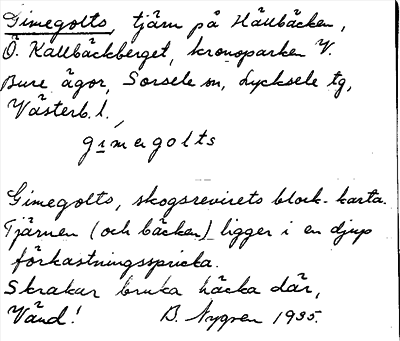 Gimegolts, tjärn på Hällbäcken,
Ö. Kallbäckberget, kronoparken V.
Bure ägor, Sorsele sn, Lycksele tg,
Västerb. l.
gimegolts
Gimegolts, skogsrevirets block-karta.
Tjärnen (och bäcken) ligger i en djup
förkastningsspricka.
Skrakar bruka häcka där,
Vänd! B. Nygren 1935.